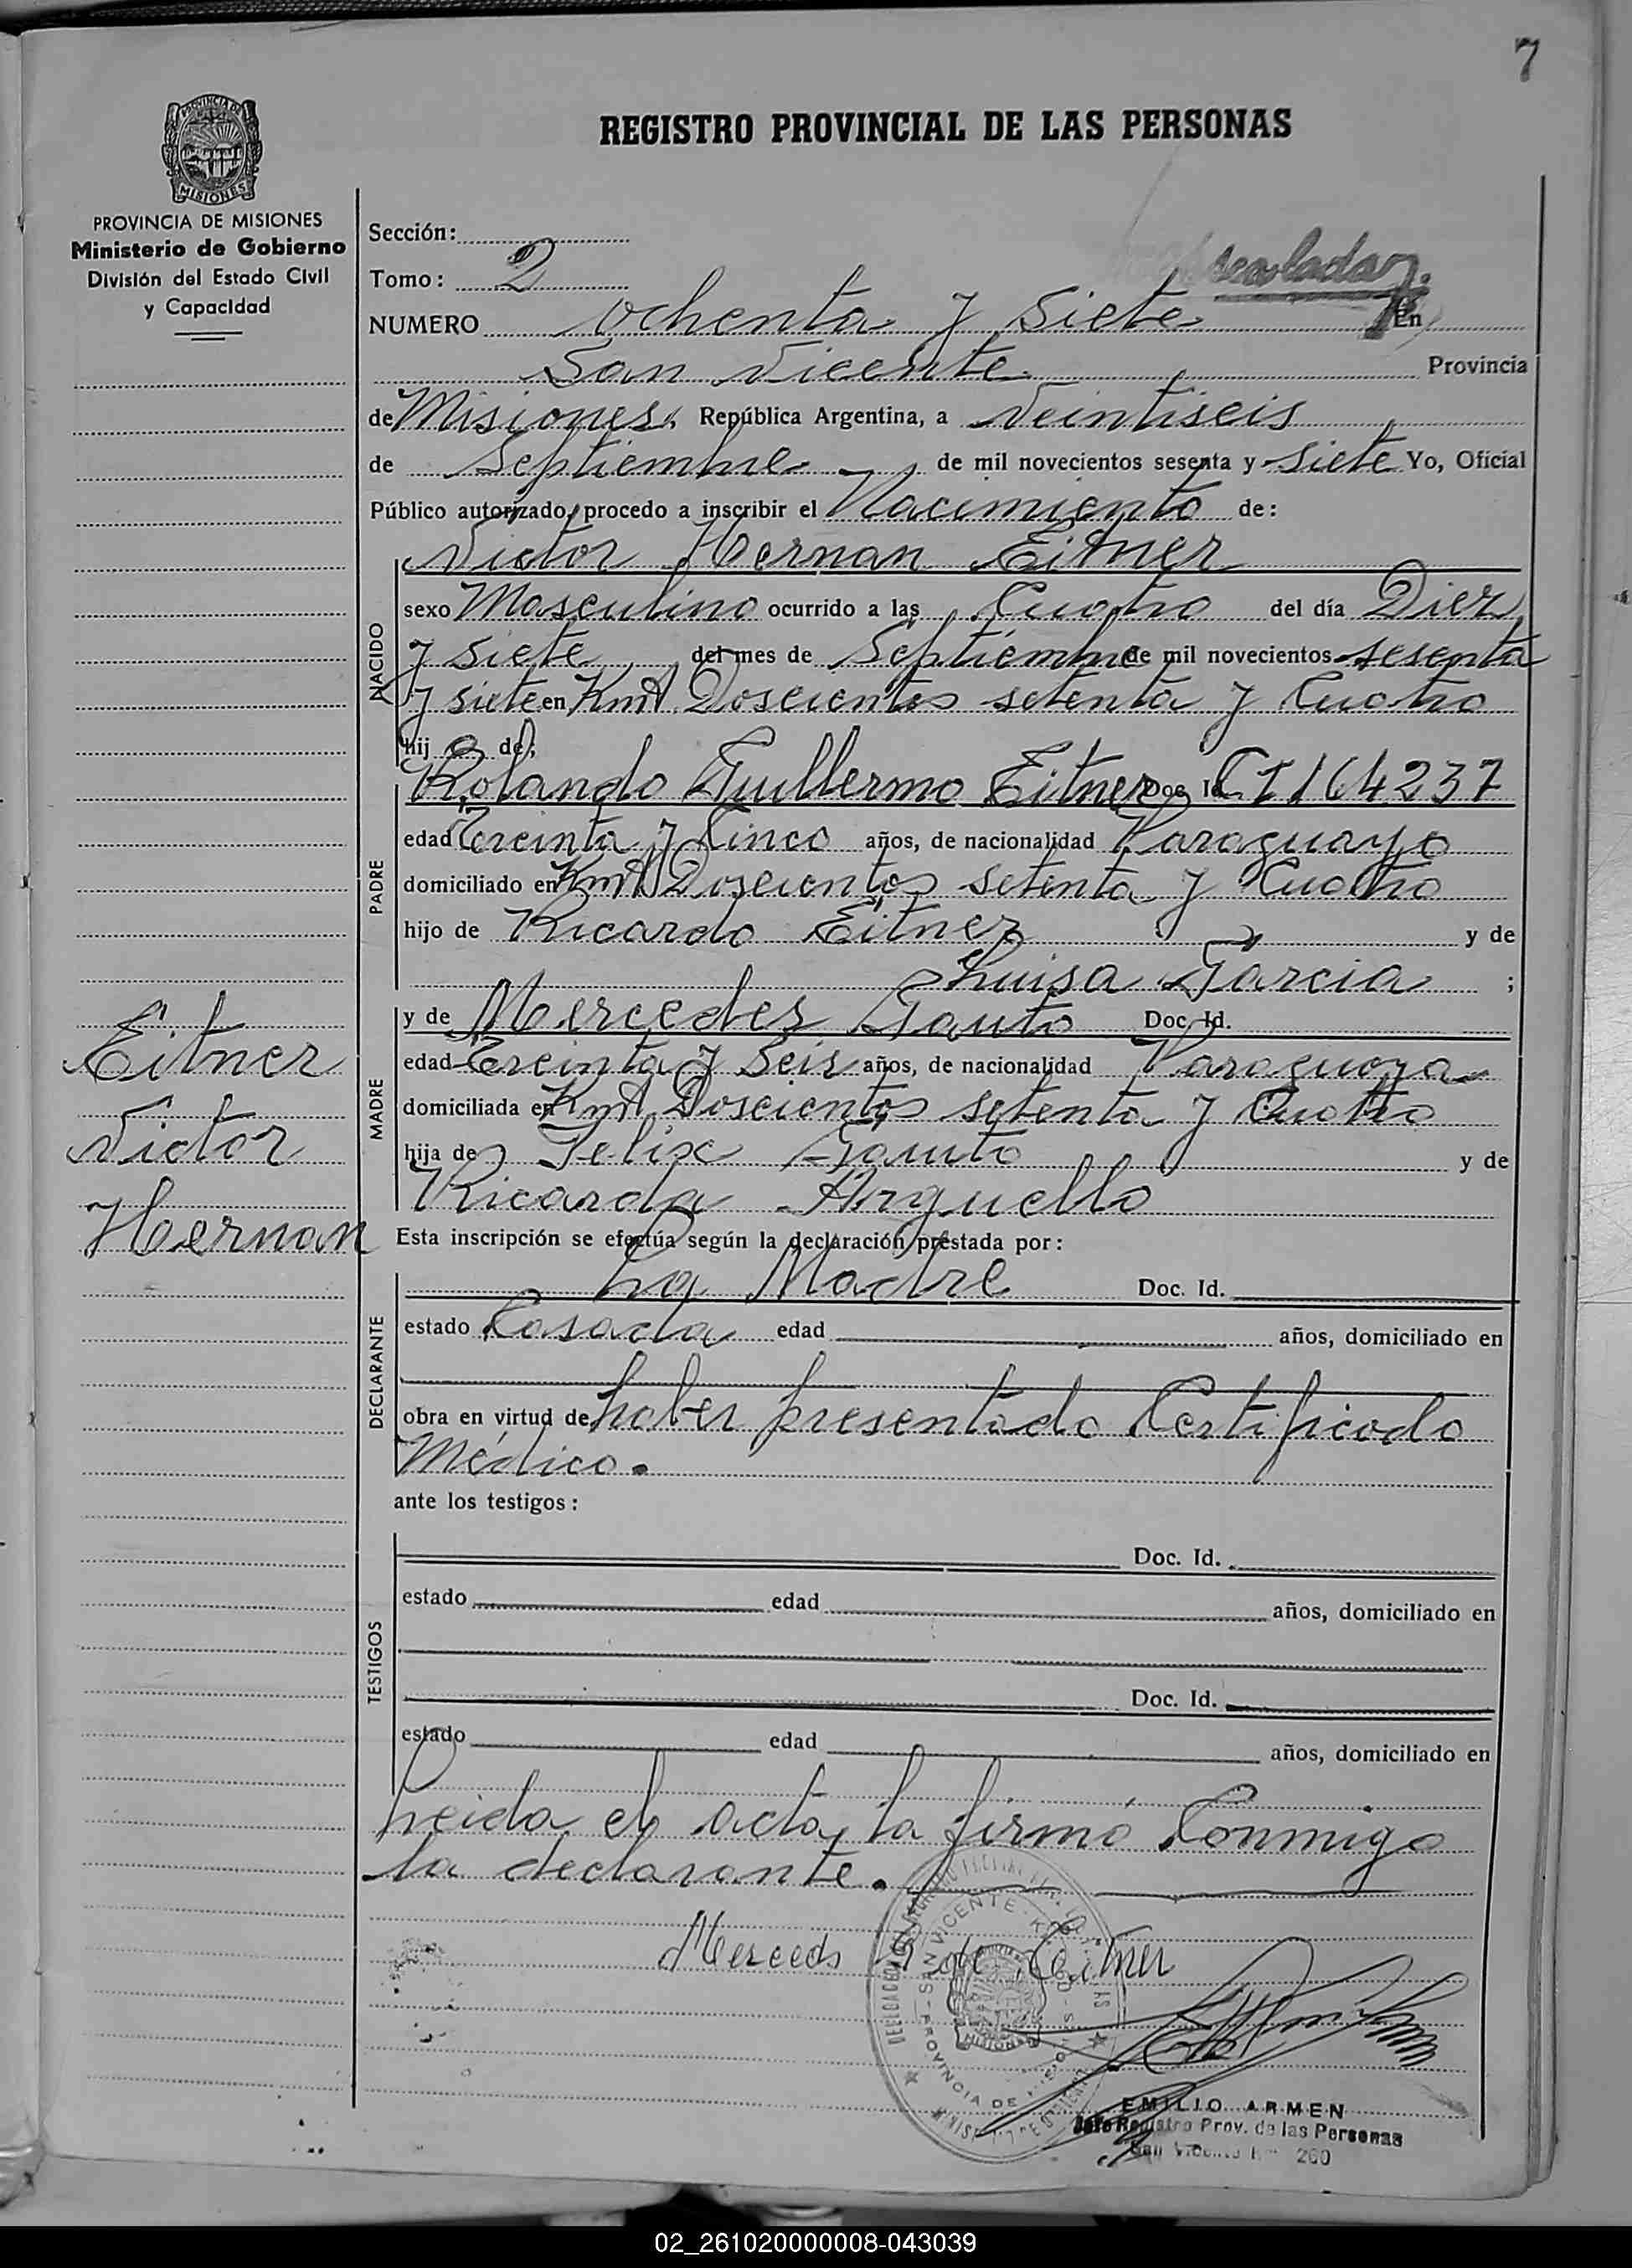 7
REGISTRO PROVINCIAL DE LAS PERSONAS
PROVINCIA DE
MISIONES
PROVINCIA DE MISIONES
Ministerio de Gobierno
División del Estado Civil
y Capacidad
Sección:
Tomo: 2
NUMERO Ochenta y Siete En
San Vicente Provincia
de Misiones, República Argentina, a Veintiseis
de Septiembre de mil novecientos sesenta y siete Yo, Oficial
Público autorizado, procedo a inscribir el Nacimiento de:
Victor Hernan Eitner
NACIDO
sexo Masculino ocurrido a las Cuatro del día Diez
y siete del mes de Septiembre de mil novecientos sesenta
y siete en Kmt. Doscientos setenta y Cuatro
hij o de;
Rolando Guillermo Eitner Doc. Id. C I 164237
PADRE
edad Treinta y Cinco años, de nacionalidad Paraguayo
domiciliado en Kmt. Doscientos setenta y Cuatro
hijo de Ricardo Eitner y de
Luisa Garcia ;
MADRE
y de Mercedes Gauto Doc. Id.
edad Treinta y Seis años, de nacionalidad Paraguaya
domiciliada en Kmt. Doscientos setenta y Cuatro
hija de Felix Gauto y de
Ricarda Arguello
Eitner
Victor
Hernan
Esta inscripción se efectúa según la declaración prestada por:
DECLARANTE
La Madre Doc. Id.
estado Casada edad años, domiciliado en
obra en virtud de haber presentado Certificado
Médico.
ante los testigos:
TESTIGOS
Doc. Id.
estado edad años, domiciliado en
Doc. Id.
estado edad años, domiciliado en
Leida el acta, la firmó Conmigo
la declarante.
Merceds G de Eitner
SAN VICENTE
PROVINCIA DE
EMILIO ARMEN
Jefe Registro Prov. de las Personas
San Vicente Km 260
02_261020000008-043039